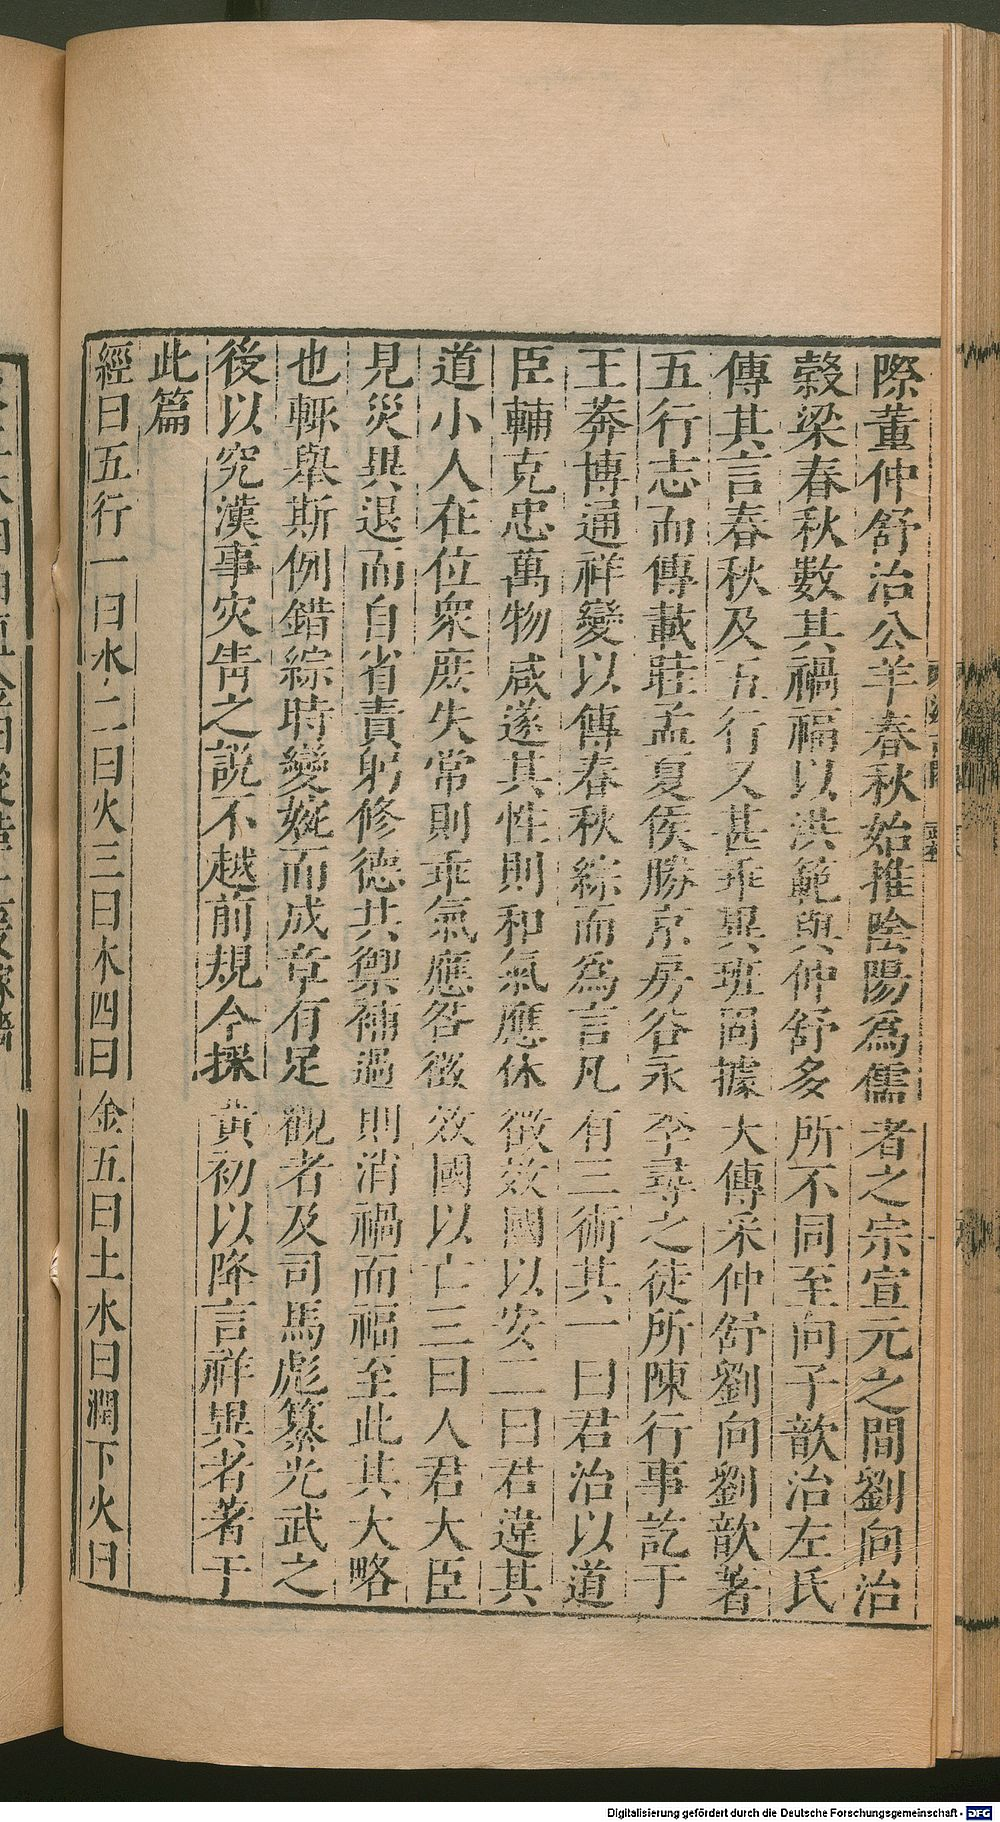 際董仲舒治公羊春秋始推陰陽為儒者之宗宣元之間劉向治
穀梁春秋數其禍福以洪範與仲舒多所不同至向子歆治左氏
傳其言春秋及五行又甚乖異班固據大傳采仲舒劉向劉歆著
五行志而傳載眭孟夏侯勝京房谷永李尋之徒所陳行事訖于
王莽博通祥變以傳春秋綜而為言凡有三術其一曰君治以道
臣輔克忠萬物咸遂其性則和氣應休徵效國以安二曰君違其
道小人在位衆庶失常則乖氣應咎徵效國以亡三曰人君大臣
見災異退而自省責躬修德共禦補過則消禍而福至此其大略
也輒舉斯例錯綜時變婉而成章有足觀者及司馬彪纂光武之
後以究漢事災眚之說不越前規今採黃初以降言祥異者著于
此篇
經曰五行一曰水二曰火三曰木四曰金五曰土水曰潤下火曰
Digitalisierung gefördert durch die Deutsche Forschungsgemeinschaft - DFG